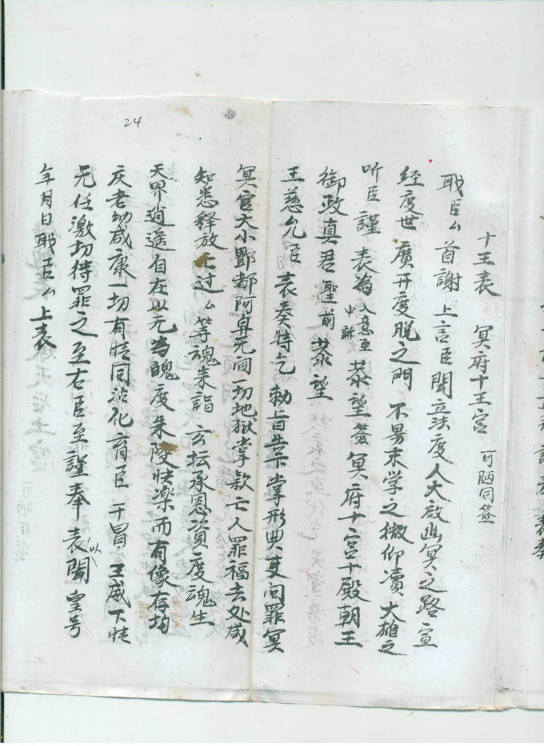 十王表　冥府十王宫　可陋同签
職臣厶首謝　上言臣聞立法度人大啟幽冥之路宣
经度世　廣开度脱之門　不易末学之微仰瀆　大雄之
听臣　謹　表為　入意至　中訴　恭望签冥府十宫十殿朝王
御政真君聖前　恭望
王慈允臣　表奏特乞　勅旨　掌形典吏问罪冥
冥官大小酆都阿鼻无间一切地狱掌款亡人罪福去处咸
知悉释放亡过厶等魂来詣　玄坛承恩資度魂生
天界逍遥自在以无為　度朱陵快楽而有像存均
庆老幼咸康一切有情同沾化育臣　干冒　王威下情
无任激切待罪之至右臣至謹奉　表以聞　皇号
年月日職臣厶　上表
24